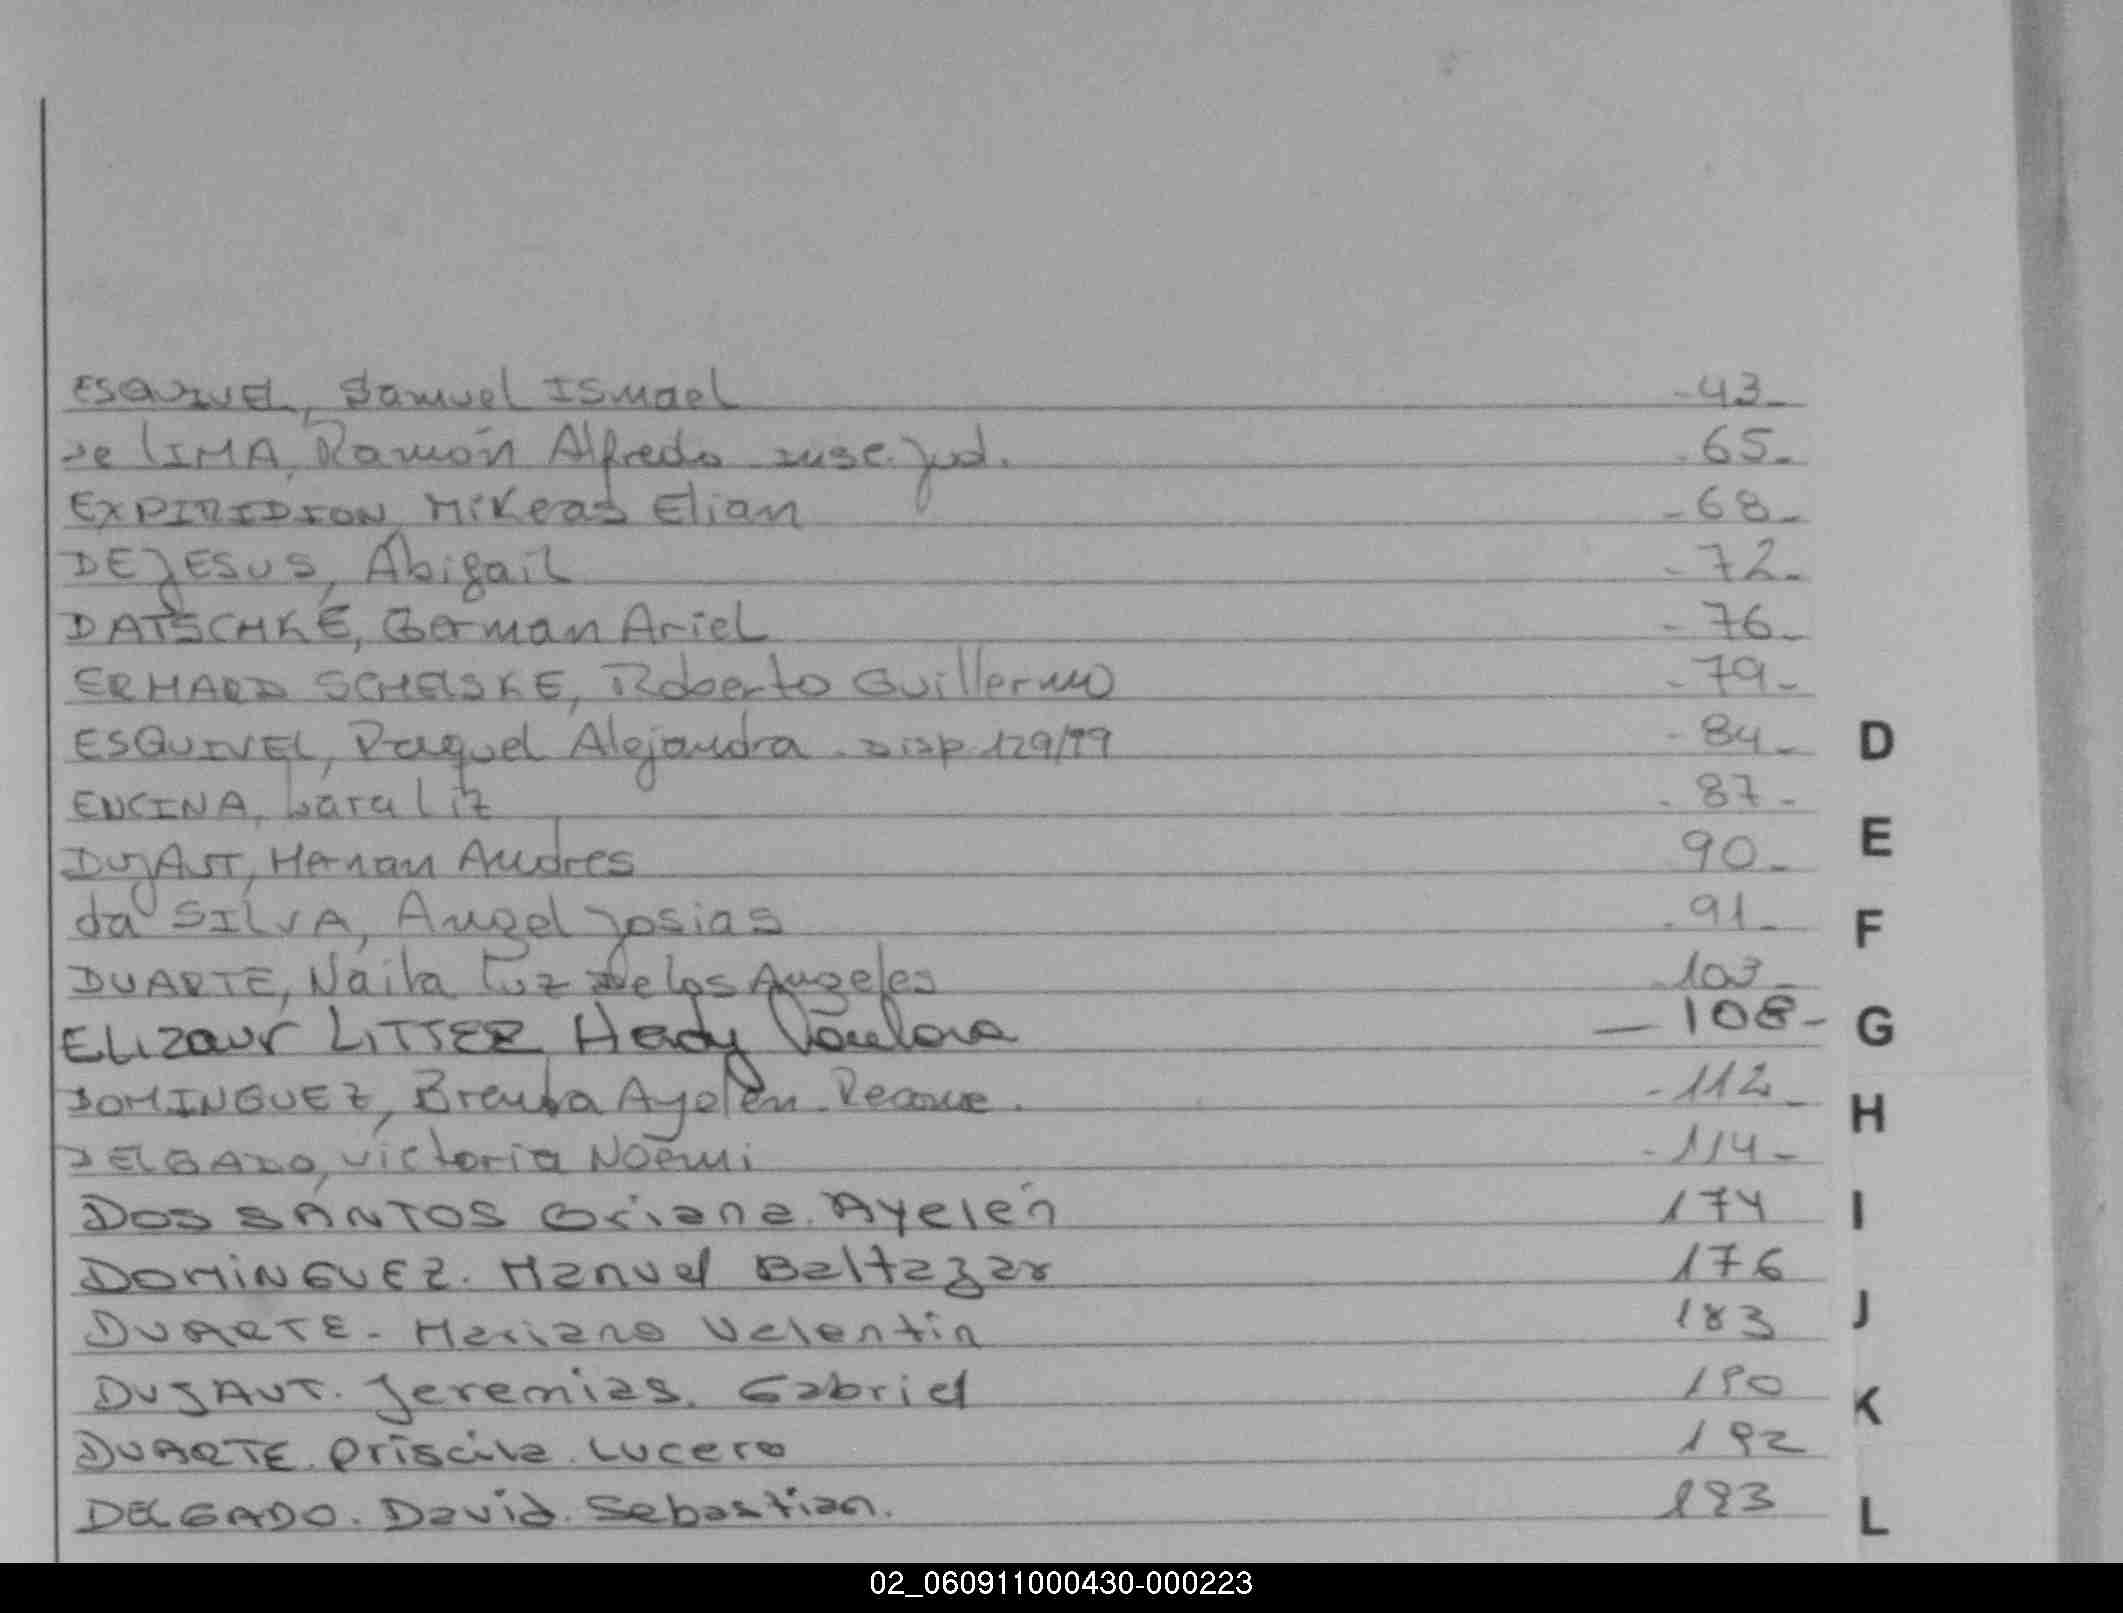 ESQUIVEL, Samuel Ismael -43-
de LIMA, Ramón Alfredo insc. jud. -65-
EXPIRIDION, Mikeas Elian -68-
DE JESUS, Abigail -72-
DATSCHKE, German Ariel -76-
ERHARD SCHELSKE, Roberto Guillermo -79-
ESQUIVEL, Raquel Alejandra - Disp. 129/99 -84-
ENCINA, Lara Liz -87-
DUJAUT, Hernan Andres 90-
da SILVA, Angel Josias -91-
DUARTE, Naila Luz De los Angeles -103-
ELIZAUR LITTER Heidy -108-
DOMINGUEZ, Brenda Ayelén - Recone. -112-
DELGADO, Victoria Noemi -114-
DOS SANTOS Oriana. Ayelén 174
DOMINGUEZ. Manuel Baltazar 176
DUARTE - Mariano Valentin 183
DUJAUT. Jeremias. Gabriel 190
DUARTE. Priscila. Lucero 192
DELGADO. David. Sebastian. 193
D
E
F
G
H
I
J
K
L
02_060911000430-000223